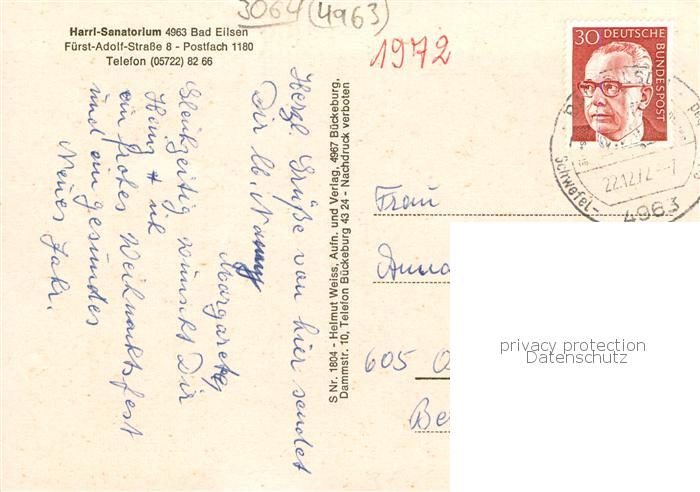 3064 (4963)
Harrl-Sanatorium 4963 Bad Eilsen
Fürst-Adolf-Straße 8 - Postfach 1180
Telefon (05722) 82 66
1972
30 DEUTSCHE
BUNDESPOST
Schwefel-
22.12.72
4963
Herzl. Grüße von hier sendet
Dir lb. Nanny
Margarete,
Gleichzeitig wünscht Dir
Heinz + ich
ein frohes Weihnachtsfest
und ein gesundes
Neues Jahr.
S Nr. 1804 - Helmut Weiss, Aufn. und Verlag, 4967 Bückeburg,
Dammstr. 10, Telefon Bückeburg 43 24 - Nachdruck verboten
Frau
Anna
605 O
Be
privacy protection
Datenschutz